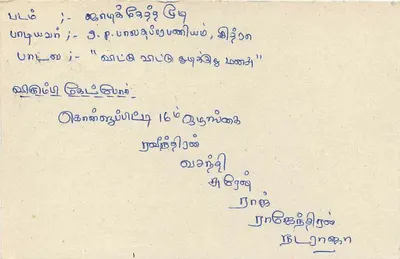 படம் ;- ஜாடிக்கேத்த மூடி
பாடியவர் ;- S. P. பாலசுப்ரமணியம், சித்ரா
பாடல் ;- "விட்டு விட்டு துடிக்குது மனசு"
விரும்பி கேட்போர்
கொள்ளுப்பிட்டி 16ம் ஒழுங்கை
ரவீந்திரன்
வசந்தி
சுரேன்
ராஜ்
ராஜேந்திரன்
நடராஜா